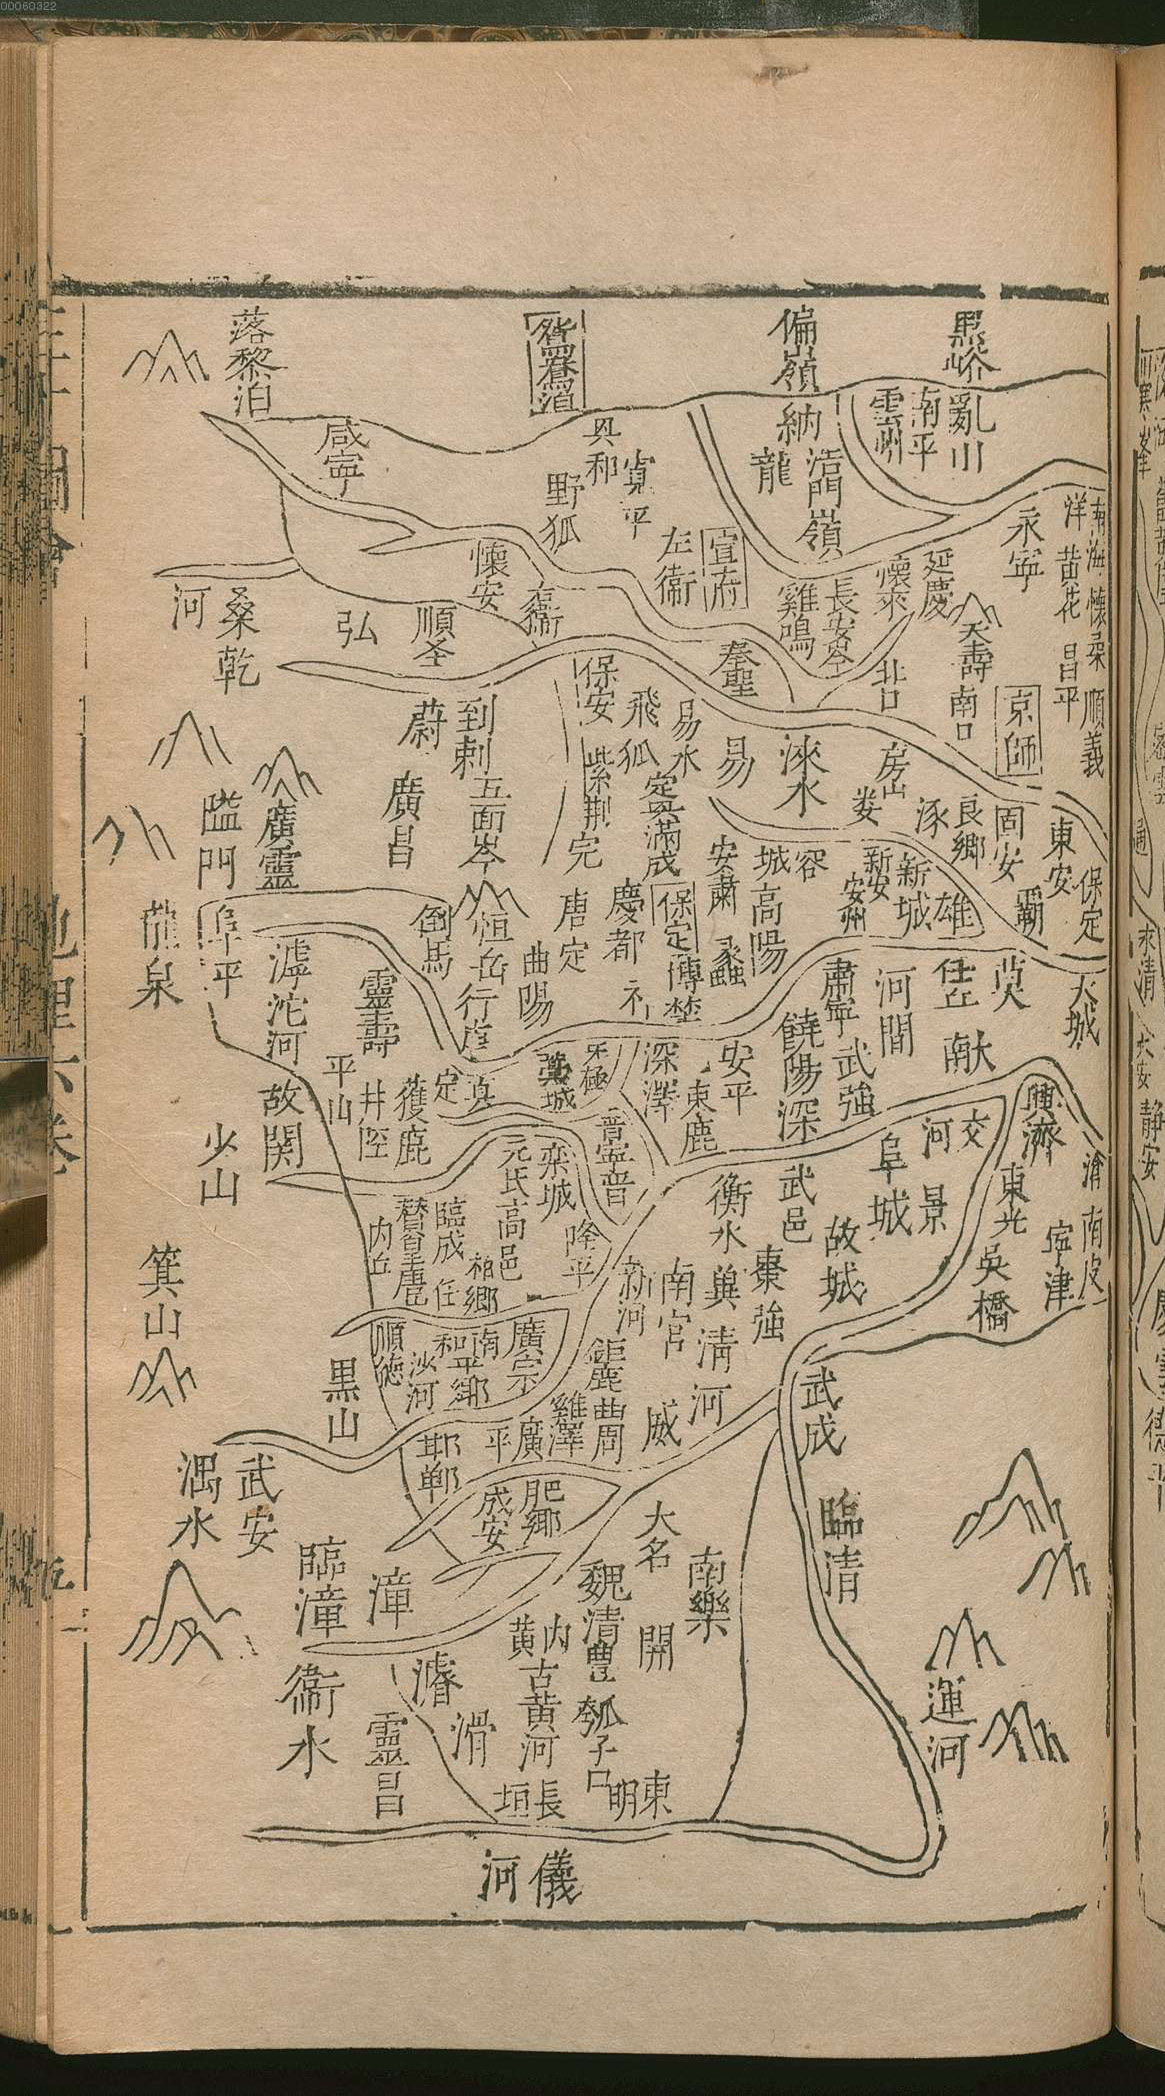 00060322
黑峪
亂川
南平
雲州
偏嶺
納
龍
浩門嶺
鴛鴦濼
興和
寬平
野狐
落黎泊
咸寧
南海
洋
永寧
苗花
懷柔
昌平
順義
延慶
懷來
天壽
南口
京師
長安岺
雞鳴
宣府
左衛
奉聖
懷安
右衛
順圣
弘
桑乾
河
保安
飛狐
易水
易
淶水
房山
婁
涿
良鄉
固安
東安
保定
霸
紫荆
完
定興
滿成
安肅
容
城
新安
新城
雄
安州
高陽
蠡
保定
博
慶都
唐
定
曲陽
祁
到剌
五面岺
蔚
廣昌
廣靈
隘門
龍泉
阜平
滹沱河
靈壽
倒馬
恒岳
行唐
大城
任丘
河間
肅寧
饒陽
武強
深
安平
東鹿
深澤
無極
藁城
真
定
獲鹿
井陘
平山
故関
少山
箕山
興濟
滄
南皮
東光
寧津
吳橋
交
河
阜城
景
武邑
故城
衡水
棗強
南宮
新河
冀
清河
威
晋
寧晉
欒城
元氏
高邑
隆平
臨成
柏鄉
任
内丘
順德
沙河
南和
平鄉
廣宗
鉅鹿
曲周
雞澤
廣
平
邯鄲
黑山
武安
湡水
肥鄉
成安
臨漳
漳
武成
臨清
大名
南樂
魏
清豐
開
内
黄
古黄河
瓠子口
濬
滑
靈昌
衛水
長
垣
東
明
運河
儀
河
三才圖會
地理六卷
五